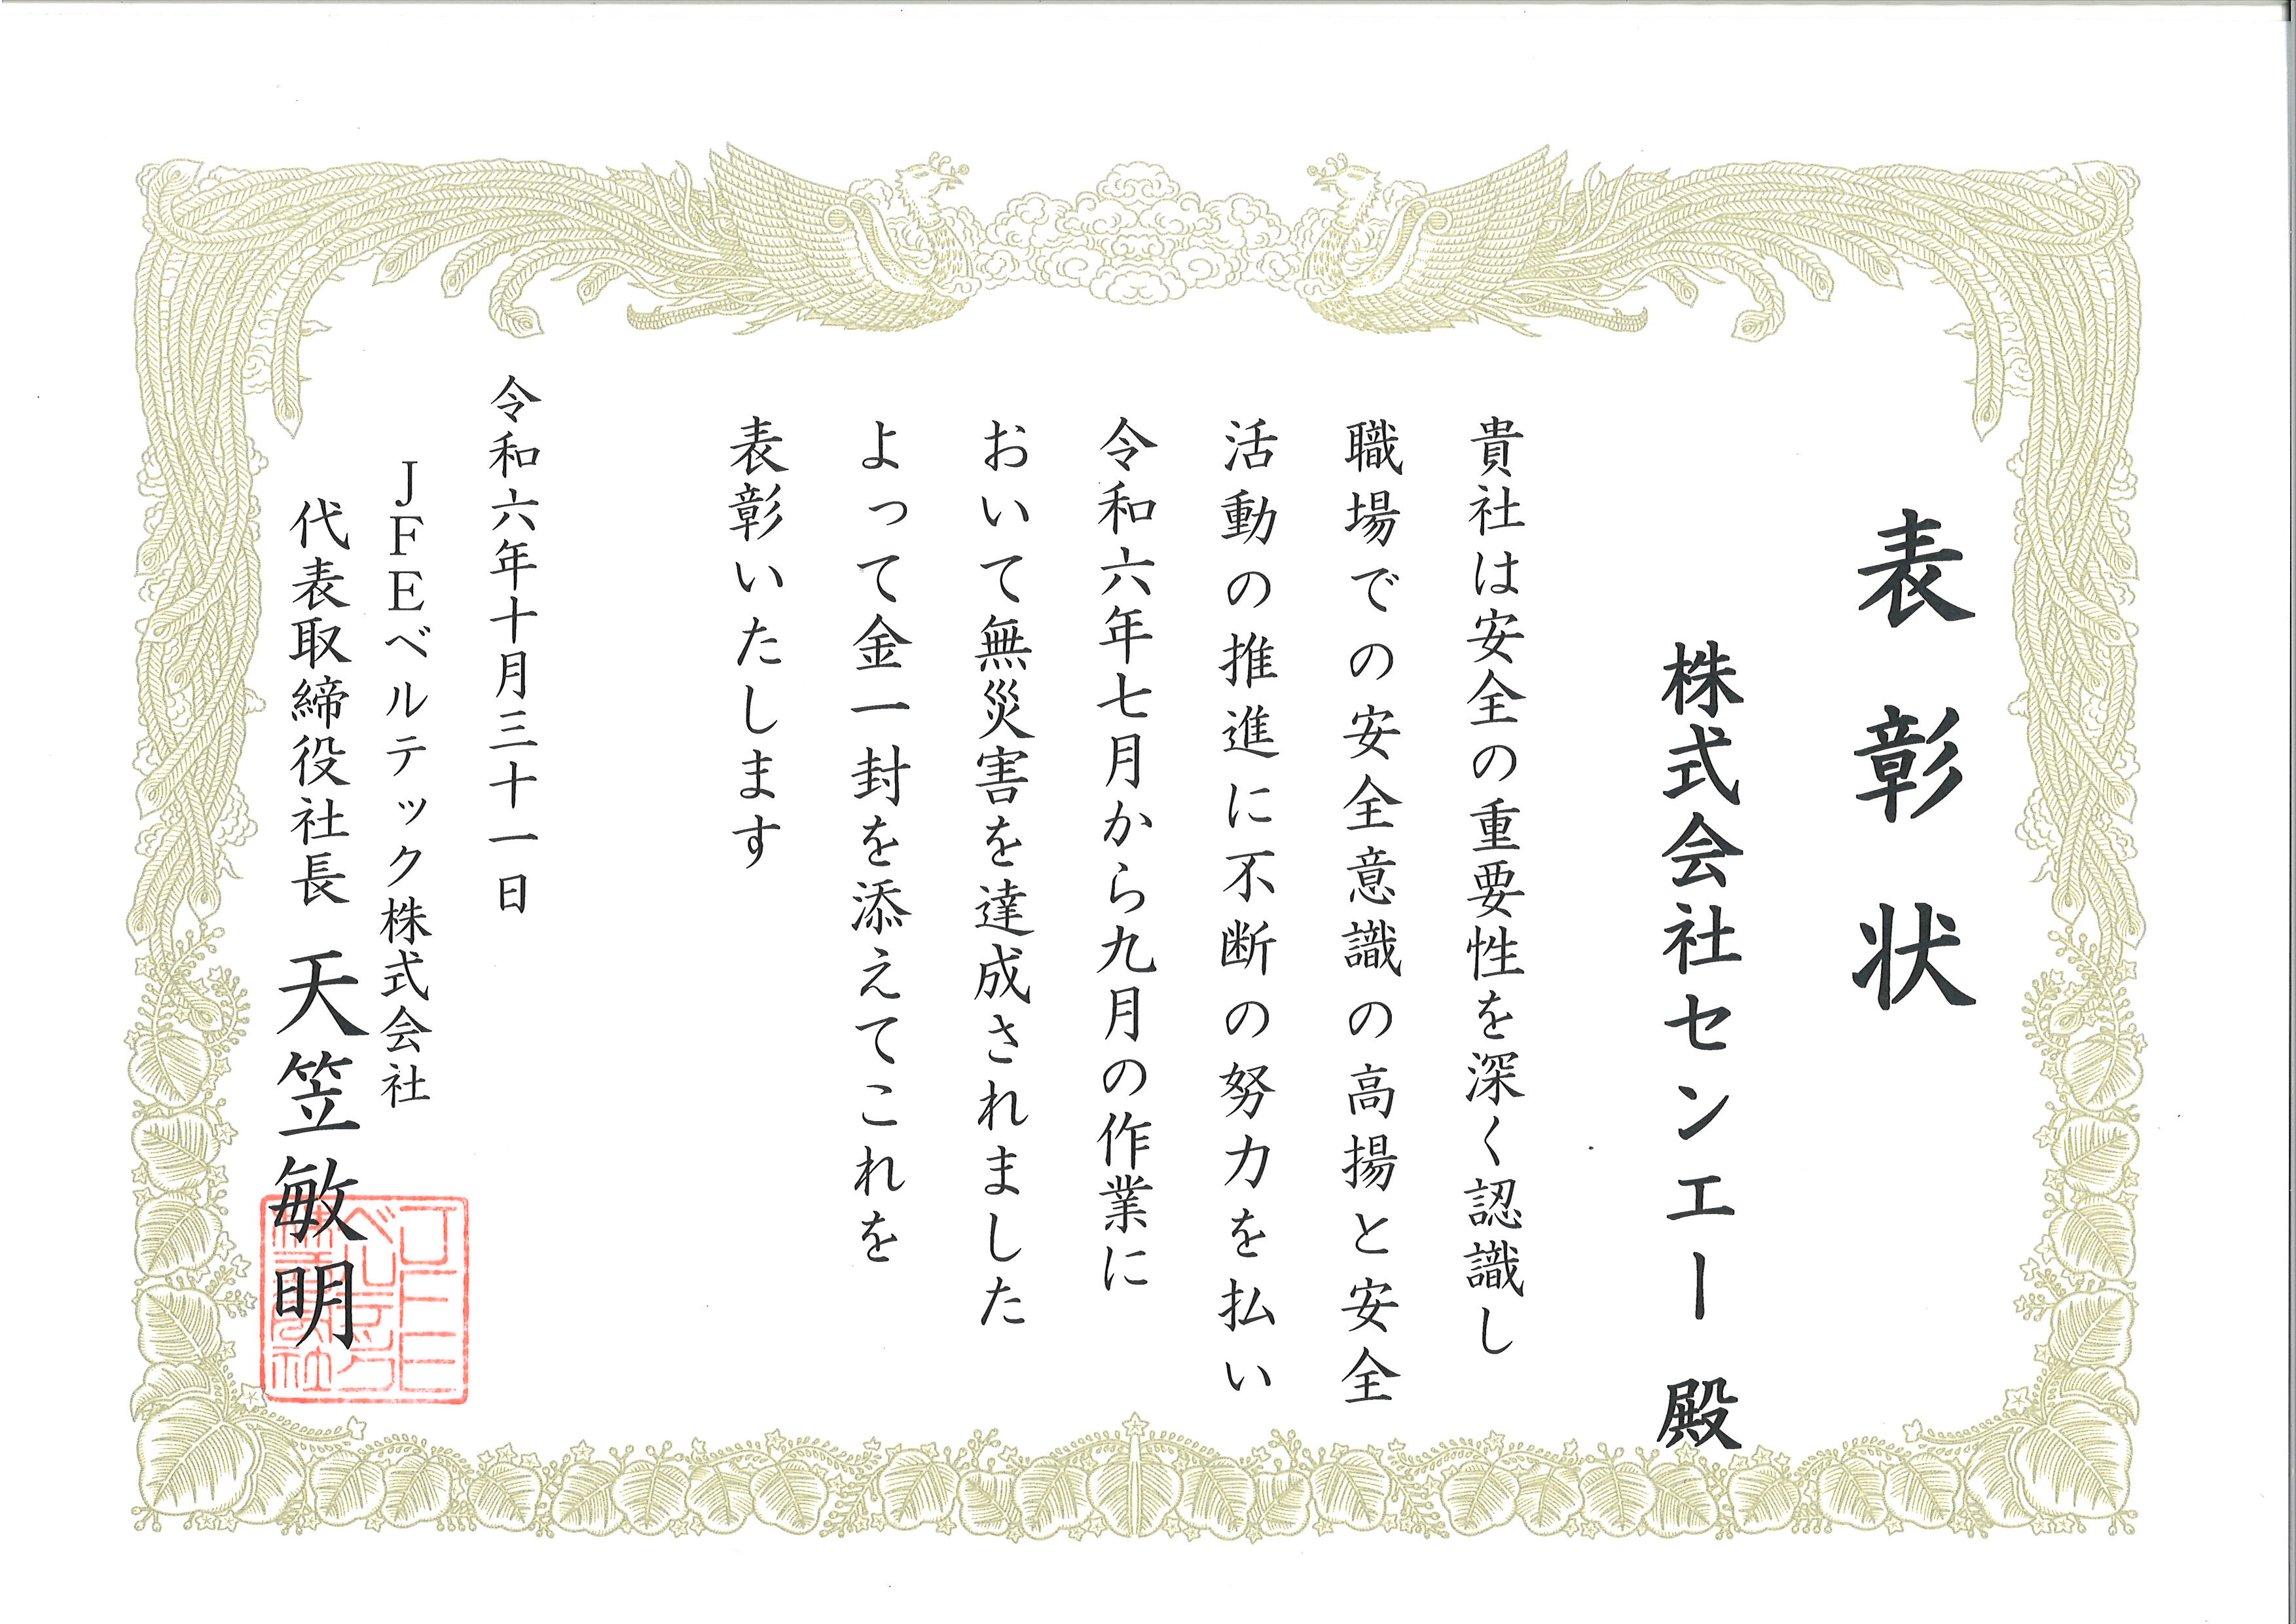 表彰状
株式会社センエー 殿
貴社は安全の重要性を深く認識し
職場での安全意識の高揚と安全
活動の推進に不断の努力を払い
令和六年七月から九月の作業に
おいて無災害を達成されました
よって金一封を添えてこれを
表彰いたします
令和六年十月三十一日
JFEベルテック株式会社
代表取締役社長 天笠敏明
JFE
ベルテック
株式会社